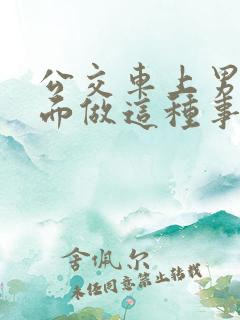 公交車上男
而做這種事
舍佩尔
未经同意禁止转载